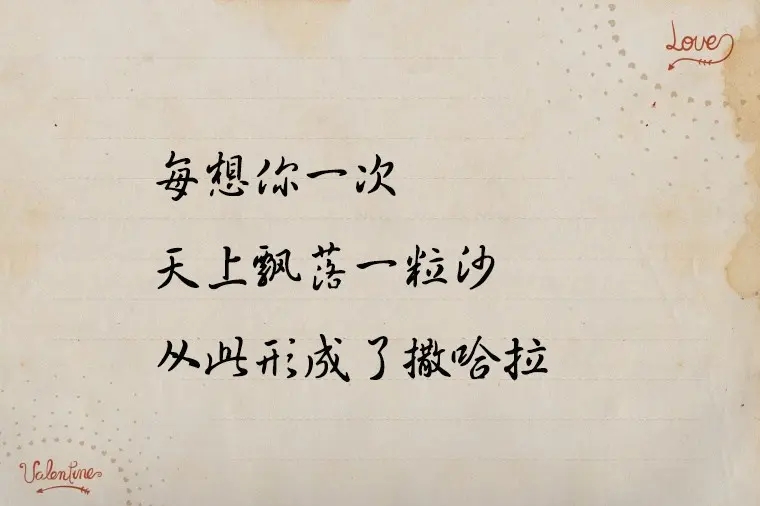 Love
每想你一次
天上飘落一粒沙
从此形成了撒哈拉
Valentine